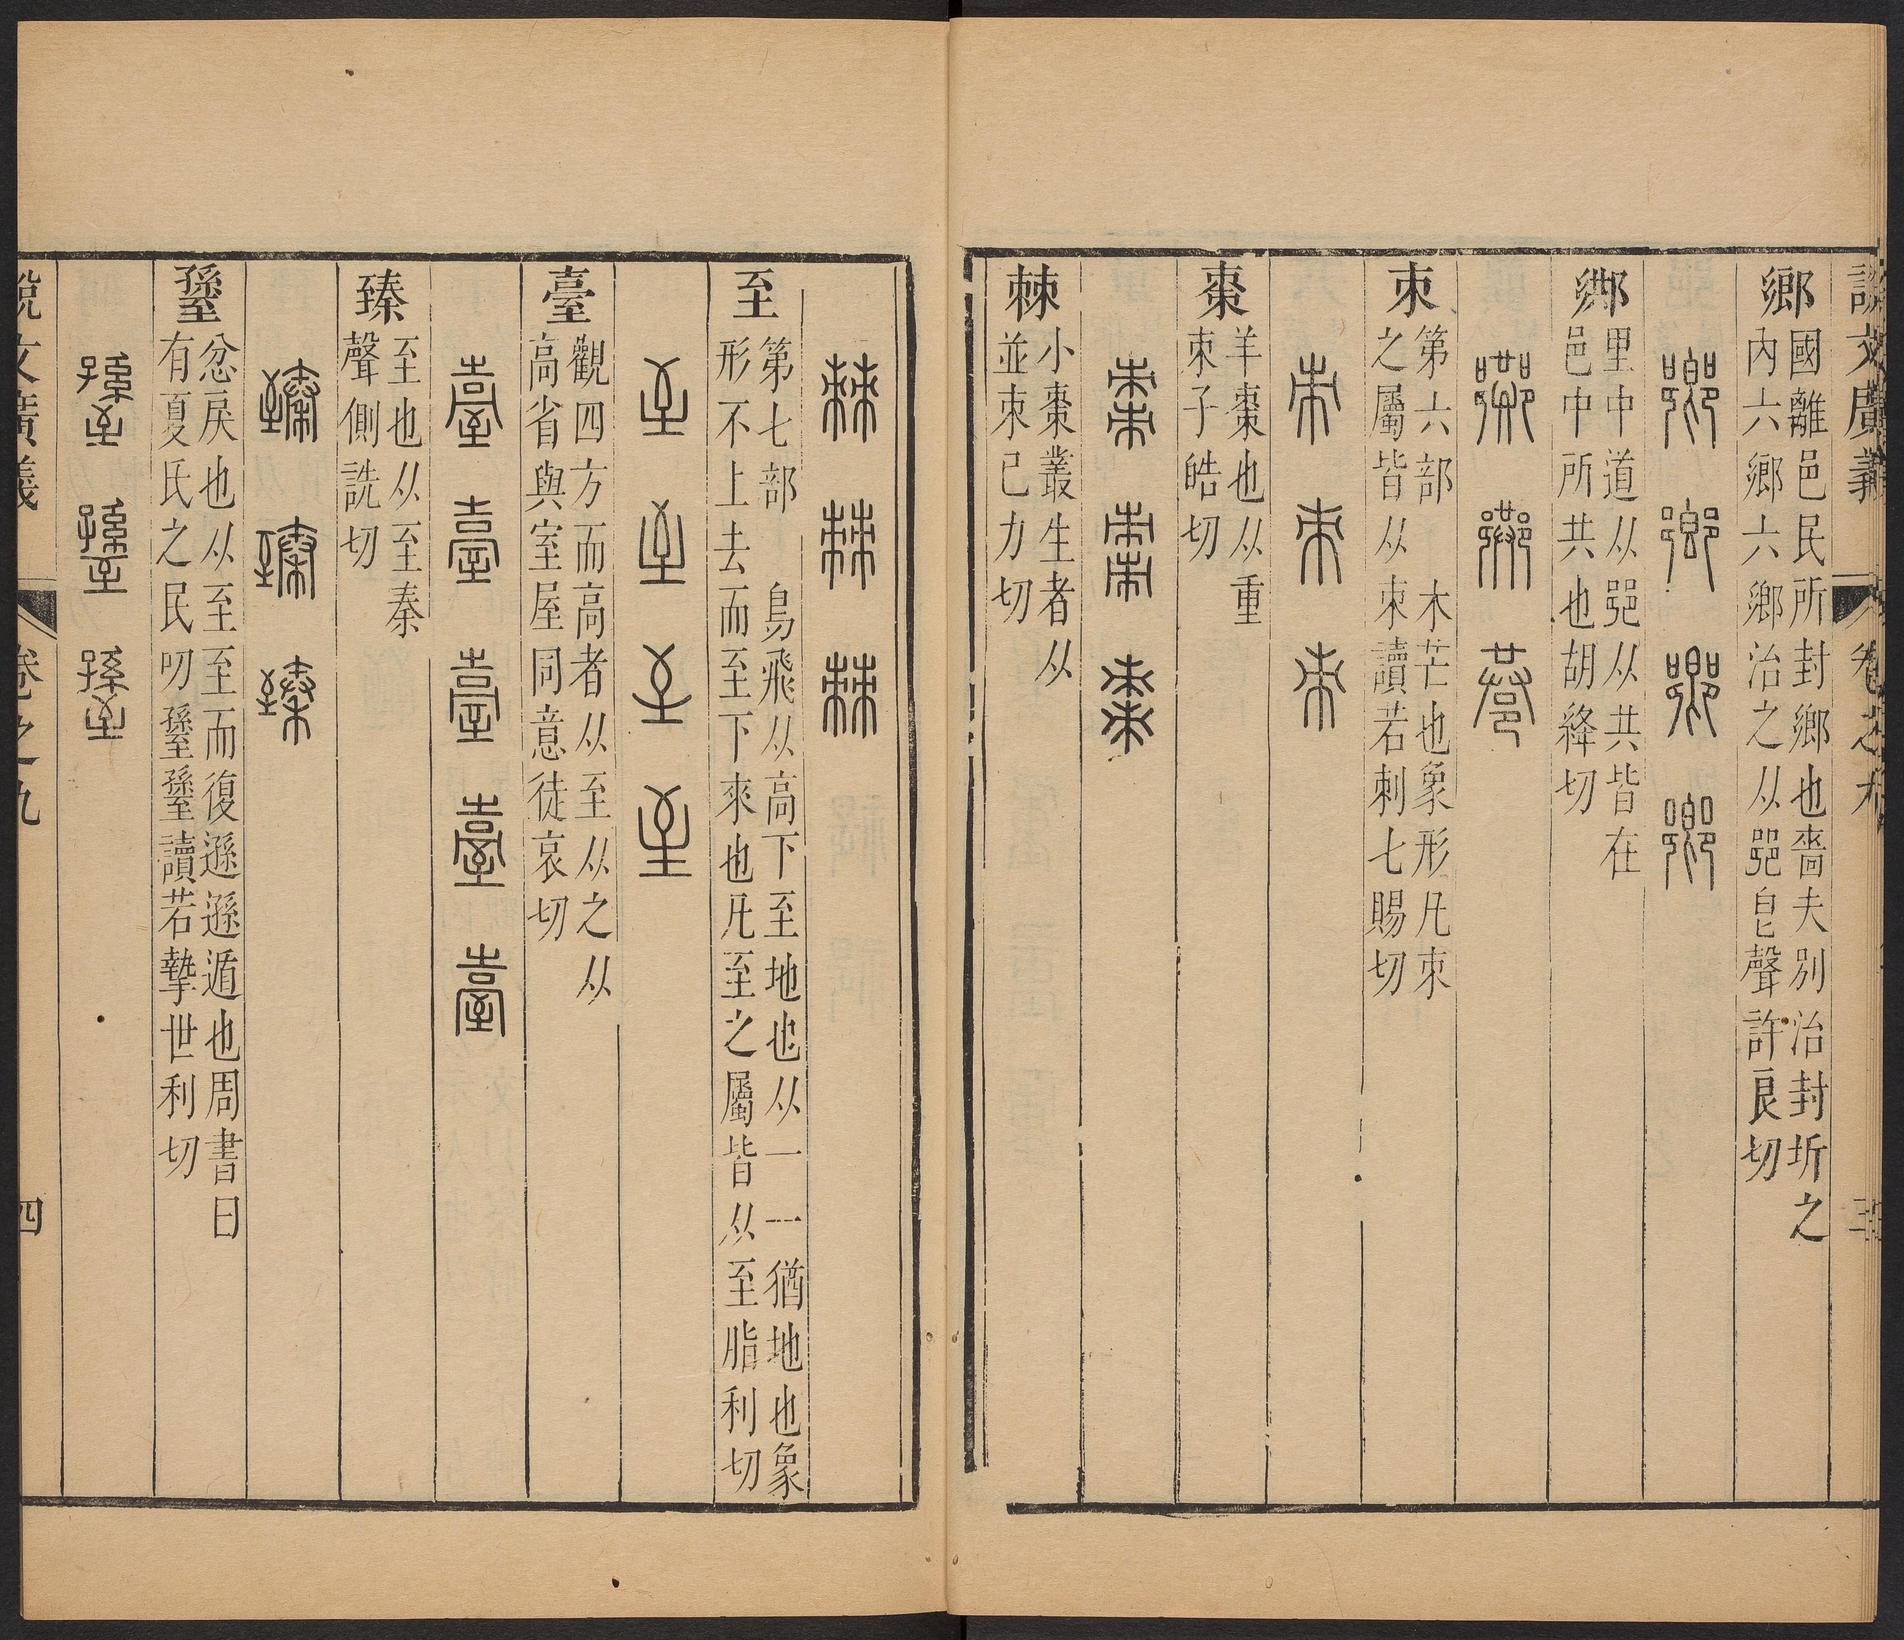 說文廣義 卷之九 三
鄉
國離邑民所封鄉也嗇夫別治封圻之
內六鄉六鄉治之从𨛜皀聲許良切
里中道从𨛜从共皆在
邑中所共也胡絳切
朿
第六部 木芒也象形凡朿
之屬皆从朿讀若刺七賜切
朿 朿 朿
棗
羊棗也从重
朿子皓切
棗 棗 棗
棘
小棗叢生者从
並朿已力切
棘 棘 棘
至
第七部 鳥飛从高下至地也从一一猶地也象
形不上去而至下來也凡至之屬皆从至脂利切
至 至 至 至
臺
觀四方而高者从至从之从
高省與室屋同意徒哀切
臺 臺 臺 臺 臺
臻
至也从至秦
聲側詵切
臻 臻 臻
𦥎
忿戾也从至至而復遜遜遁也周書曰
有夏氏之民叨𦥎𦥎讀若摯世利切
𦥎 𦥎 𦥎
說文廣義 卷之九 四